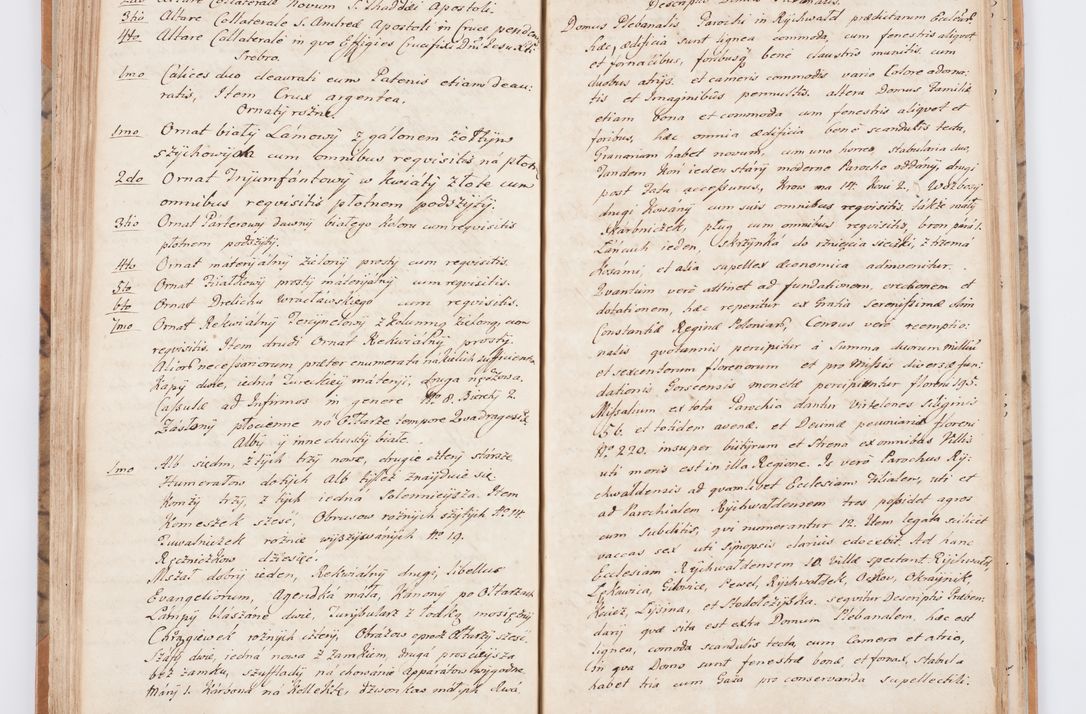 2do Altare Collaterale Novum S. Thaddæi Apostoli.
3tio Altare Collaterale S. Andreæ Apostoli in Cruce penden
4to Altare Collaterale in quo Effigies Crucifixi Dni Jesu Xti
Srebro.
1mo Calices duo deaurati cum Patenis etiam deau:
ratis, Item Crux argentea.
Ornaty rożne.
1mo Ornat biały Lamowy z galonem żołtym
szychowym cum omnibus reqvisitis na płotn
2do Ornat Tryumfántowy w kwiáty złote cum
omnibus reqvisitis płotnem podszyty.
3tio Ornat Párterowy dawny białego koloru cum reqvisitis
płotnem podszyty.
4to Ornat materyálny zielony prosty cum reqvisitis.
5to Ornat Fiiałkowy prosty máteryálny cum reqvisitis.
6to Ornat Drelichu Wrocławskiego cum reqvisitis.
7mo Ornat Rekwiálny Tercynelowy z kolumną zieloną, cum
reqvisitis. Item drugi Ornat Rekwialny prosty.
Aliorũ necessariorum præter enumerata na kielich sufficientia
Kapy dwie, iedna Tureckiey máteryi, druga
Cassulæ ad Infirmos in genere No 8. Bierety 2.
Zásłony płocienne na Ołtarze tempore Qvadragesimæ
Alby y inne chusty białe.
1mo Alb siedm, z tych trzy nowe, drugie cztery stársze
Humerałow do tych Alb tyleż znayduie się
Komży trzy, z tych iedná Solennieysza. Item
Komeszek sześć, Obrusow rożnych zszytych No 14.
Tuwalniczek rożnie wyszywanych No 19.
Ręczniczkow dziesięć.
Mszał dobry ieden, Rekwiálny drugi, libellus
Evangeliorum, Agendka máła, Kánony po Ołtarzach
Lámpy blászáne dwie, Turybularz z łodką mosiężny
Chorągiewek rożnych cztery, Obrázow oprocz Ołtarzy sześć.
Száfy dwie, iedná nowa z zamkiem, drugá prościeysza
bez zamku, szuflady ná chowánie Appáratow
Máry 1. Kárboná ná Kollektę, dzwonkow máłych dwá

Descriptio Domus Plebanalis.
Domus Plebanalis Parochi in Rychwałd prædictarum Ecclesiarũ
hæc ædificia sunt lignea commoda, cum fenestris aliquot
et fornacibus, foribusq bene claustris munitis, cum
duobus atrijs, et cameris commodis vario Colore adorna:
tis et Imaginibus permultis. altera Domus familiæ
etiam bona et commoda cum fenestris aliquot et
foribus, hæc omnia ædificia bene scandulis tecta,
Granarium habet novum, cum uno horreo, stabularia duo,
Tandem Koń ieden stáry moderno Parocho oddány, drugi
post fata accessurus, Krow ma 14. Koni 2. Woz bosy
drugi Kowány cum suis omnibus reqvisitis, także máły
Skárbniczek, pług cum omnibus reqvisitis, bron pár 1.
Łáncuch ieden, Skrzynka do rznięcia sieczki, z trzemá
Kosámi, et alia supellex œconomica adinvenitur.
Qvantum verò attinet ad fundationem, erectionem et
dotationem, hæc reperitur ex Gratia Serenissimæ olim
Constantiæ Reginæ Poloniarũ, Census verò reemptio:
nalis quotannis percipitur à summa duorum millium
et sexentorum florenorum et pro Missis diversæ fun:
dationis Gorscensis monetæ percipiuntur floreni 195.
Missalium ex tota Parochia dantur virtelones Siliginis
156. et totidem avenæ. et Decimæ pecuniariæ floreni
No 220. insuper butyrum et Strena ex omnibus Villis
uti moris est in illa Regione. Is verò Parochus Ry:
chwaldensis ad quamlibet Ecclesiam Filialem, uti et
ad Parochialem Rychwaldensem tres possidet agros
cum subditis, qvi numerantur 12. Item legata scilicet
vaccas sex uti Synopsis clarius edocebit. Ad hanc
Ecclesiam Rychwaldensem 10. Villæ spectant. Rychwałd,
Łękawica, Gilowice, Pewel, Rychwałdek, Oczkow, Okrajnik,
Kocież, Łysina, et Kocierz. seqvitur Descriptio Præben:
darij quæ sita est extra Domum Plebanalem, hæc est
lignea, comoda scandulis tecta, cum Camera et atrio,
In qva Domo sunt fenestræ bonæ, et fornax, stabula
habet tria cum Gaza pro conservanda supellectili.